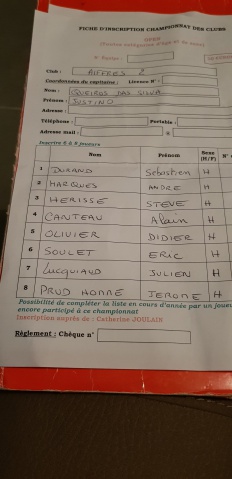 FICHE D'INSCRIPTION CHAMPIONNAT DES CLUBS
OPEN
N° Equipe :
Club : AIFFRES 2
Coordonnées du capitaine : Licence N° :
Nom : QUEIROS DAS SILVA
Prénom : JUSTINO
Adresse :
Téléphone : Portable :
Adresse mail : @
Inscrire 6 à 8 joueurs
Nom Prénom Sexe (H/F) N°
1 DURAND Sébastien H
2 MARQUES ANDRE H
3 HERISSE STEVE H
4 CANTEAU Alain H
5 OLIVIER DIDIER H
6 SOULET ERIC H
7 Lucquiaud JULIEN H
8 PRUD HOMME JEROME H
Possibilité de compléter la liste en cours d'année par un joueu
encore participé à ce championnat
Inscription auprès de : Catherine JOULAIN
Règlement : Chèque n°